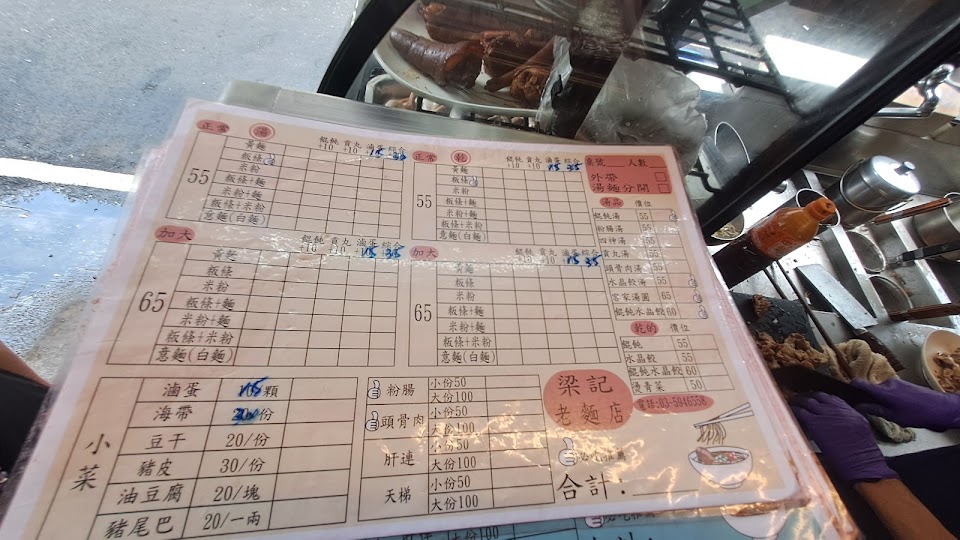 正常 湯 餛飩 貢丸 滷蛋 綜合
+10 +10 15 35
55
黃麵
板條
米粉
板條+麵
米粉+麵
板條+米粉
意麵(白麵)
正常 乾 餛飩 貢丸 滷蛋 綜合
+10 +10 15 35
55
黃麵
板條
米粉
板條+麵
米粉+麵
板條+米粉
意麵(白麵)
桌號 人數
外帶
湯麵分開
湯品 價位
餛飩湯 55
粉腸湯 55
四神湯 55
貢丸湯 55
頭骨肉湯 55
水晶餃湯 55
客家湯圓 65
餛飩水晶餃 60
乾的 價位
餛飩 55
水晶餃 55
餛飩水晶餃 60
燙青菜 50
加大 餛飩 貢丸 滷蛋 綜合
+10 +10 15 35
65
黃麵
板條
米粉
板條+麵
米粉+麵
板條+米粉
意麵(白麵)
加大 餛飩 貢丸 滷蛋 綜合
+10 +10 15 35
65
黃麵
板條
米粉
板條+麵
米粉+麵
板條+米粉
意麵(白麵)
小菜
滷蛋 15顆
海帶 /份
豆干 20/份
豬皮 30/份
油豆腐 20/塊
豬尾巴 20/一兩
粉腸 小份50
大份100
頭骨肉 小份50
大份100
肝連 小份50
大份100
天梯 小份50
大份100
梁記
老麵店
電話:03-5946558
合計:
大份100